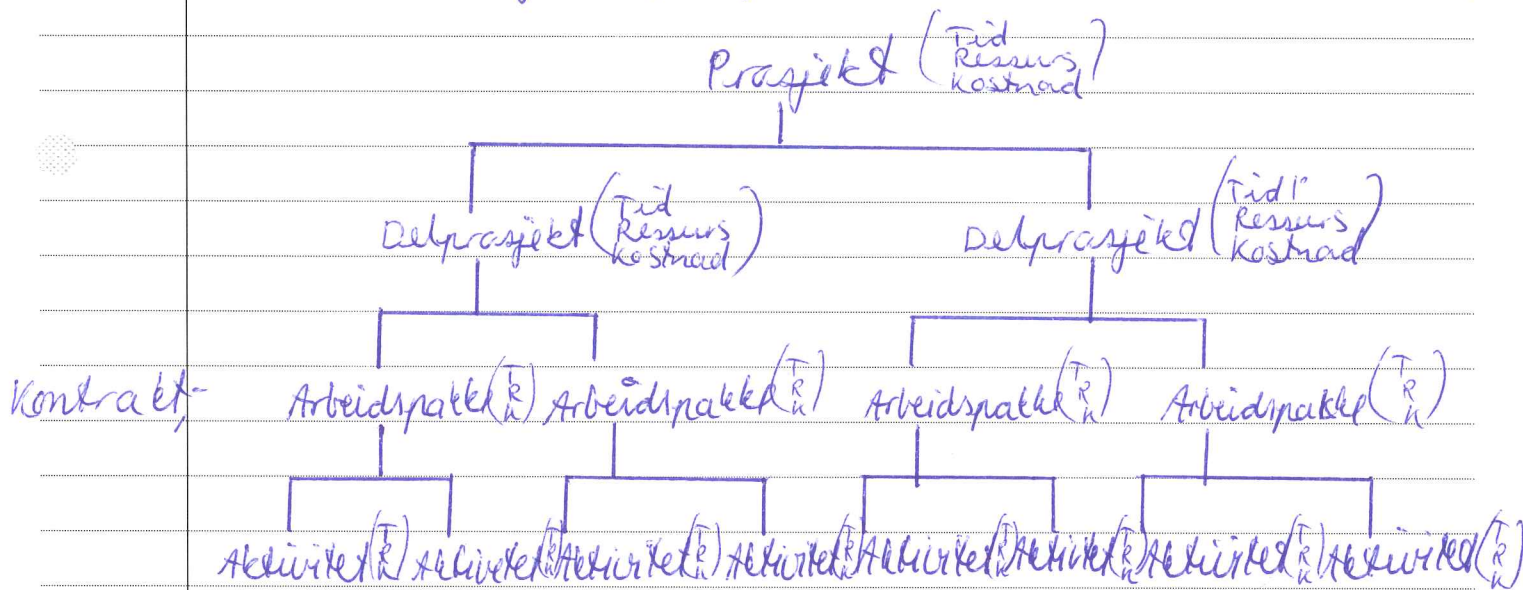 Prosjekt (Tid Ressurs Kostnad)
Delprosjekt (Tid Ressurs Kostnad) Delprosjekt (Tid Ressurs Kostnad)
Kontrakt,- Arbeidspakke (T R K) Arbeidspakke (T R K) Arbeidspakke (T R K) Arbeidspakke (T R K)
Aktivitet (T R K) Aktivitet (T R K) Aktivitet (T R K) Aktivitet (T R K) Aktivitet (T R K) Aktivitet (T R K) Aktivitet (T R K) Aktivitet (T R K)